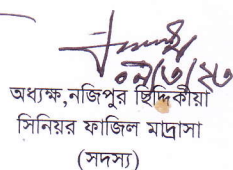 অধ্যক্ষ,নজিপুর ছিদ্দিকীয়া
সিনিয়র ফাজিল মাদ্রাসা
(সদস্য)